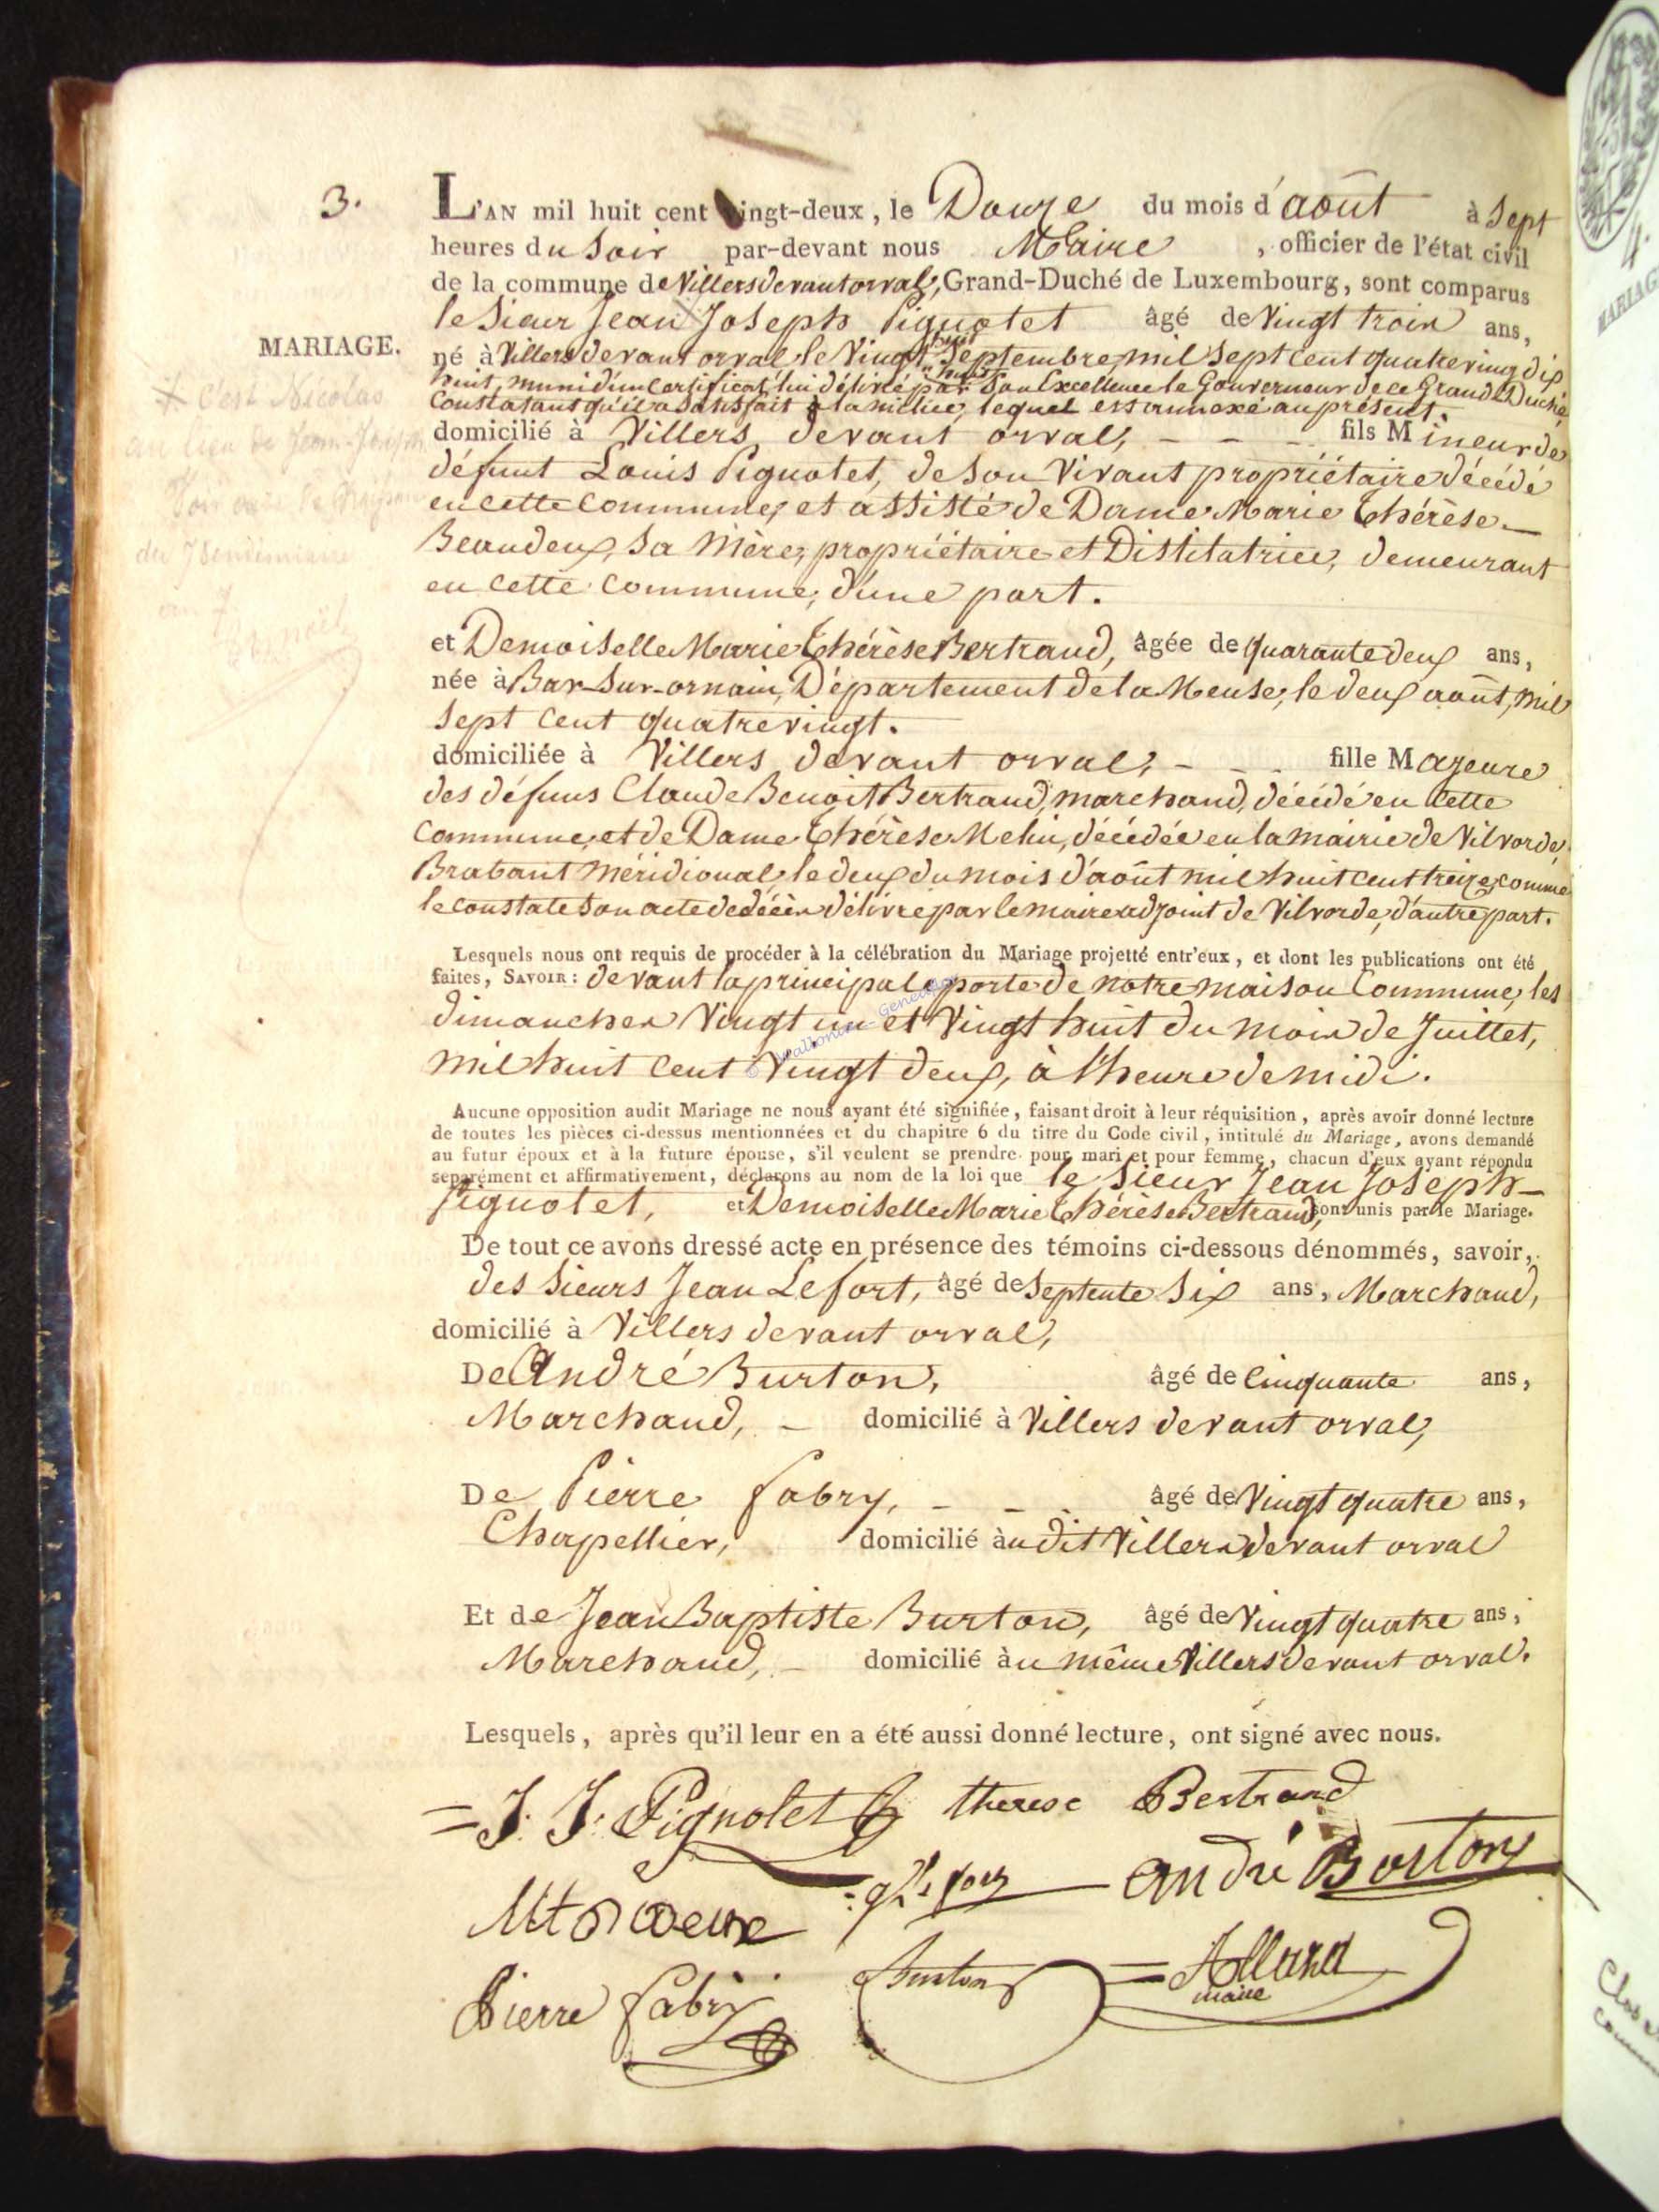 3.
L'AN mil huit cent vingt-deux, le Douze du mois d'août à Sept
heures du Soir par-devant nous Maire, officier de l'état civil
de la commune de Villers devant orval, Grand-Duché de Luxembourg, sont comparus
le Sieur Jean Joseph Pignolet âgé de Vingt trois ans,
MARIAGE.
né à Villers devant orval le Vingt huit Septembre, mil Sept cent quatrevingt dix
huit, muni d'un certificat lui délivré par Son Excellence le Gouverneur de ce Grand Duché
Constatant qu'il a Satisfait à la milice, lequel est annexé au présent.
domicilié à Villers devant orval, - - - fils Mineur de
défunt Louis Pignolet, de Son Vivant propriétaire décédé
en cette Commune, et assisté de Dame Marie Thérèse
Beaudeux, Sa Mère, propriétaire et Distilatrice, demeurant
en cette Commune, d'une part.
* C'est Nicolas
au lieu de Jean-Joseph
du 7 Vendémiaire
an 7
et Demoiselle Marie Thérèse Bertrand, âgée de quarante deux ans,
née à Bar-Sur-ornain, Département de la Meuse, le deux août, Mil
Sept Cent quatrevingt.
domiciliée à Villers devant orval, - - - fille Majeure
des défuns Claude Benoit Bertrand, marchand, décédé en Cette
Commune, et de Dame Thérèse Melin, décédée en la mairie de Vilvorde,
Brabant Méridional, le deux du mois d'août mil huit cent treize, comme
le constate Son acte de décès délivré par le maire adjoint de Vilvorde, d'autre part.
Lesquels nous ont requis de procéder à la célébration du Mariage projetté entr'eux, et dont les publications ont été
faites, SAVOIR: devant la principale porte de notre maison Commune, les
dimanches Vingt un et Vingt huit du mois de Juillet,
Mil huit Cent Vingt deux, à l'heure de midi.
Aucune opposition audit Mariage ne nous ayant été signifiée, faisant droit à leur réquisition, après avoir donné lecture
de toutes les pièces ci-dessus mentionnées et du chapitre 6 du titre du Code civil, intitulé du Mariage, avons demandé
au futur époux et à la future épouse, s'il veulent se prendre pour mari et pour femme, chacun d'eux ayant répondu
separément et affirmativement, déclarons au nom de la loi que le Sieur Jean Joseph
Pignolet, et Demoiselle Marie Thérèse Bertrand, sont unis par le Mariage.
De tout ce avons dressé acte en présence des témoins ci-dessous dénommés, savoir,
des Sieurs Jean Lefort, âgé de Septente Six ans, Marchand,
domicilié à Villers devant orval,
De André Burton, âgé de Cinquante ans,
Marchand, - domicilié à Villers devant orval,
De Pierre fabry, - - - âgé de Vingt quatre ans,
Chapellier, domicilié àu dit Villers devant orval
Et de Jean Baptiste Burton, âgé de Vingt quatre ans,
Marchand, - domicilié àu même Villers devant orval.
Lesquels, après qu'il leur en a été aussi donné lecture, ont signé avec nous.
J. J. Pignolet therese Bertrand
André Burton
Pierre fabry Burton Allard
maire
4.
MARIAG
Clos e
Commu